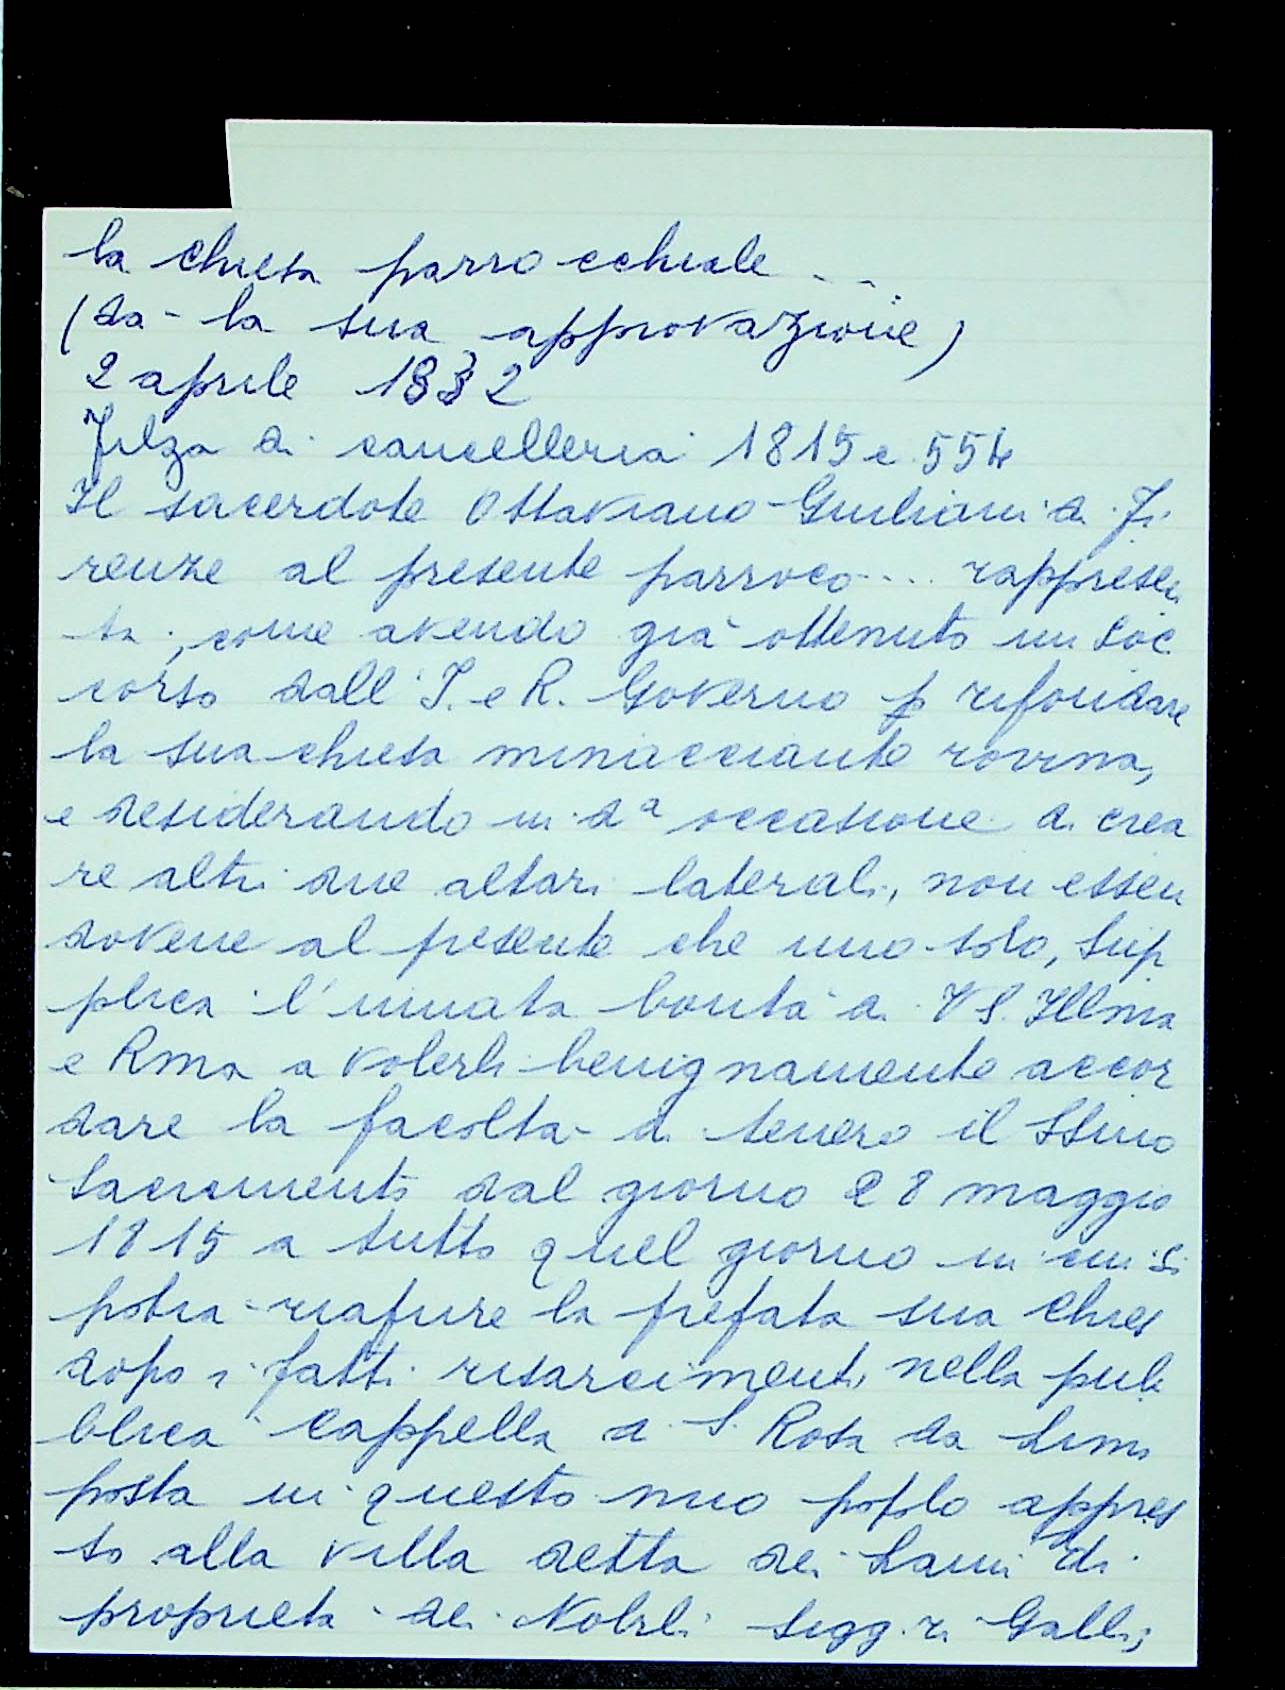 la chiesa parrocchiale ...
(da - la sua approvazione)
2 aprile 1832
Filza di cancelleria 1815 c. 554
Il sacerdote Ottaviano Giuliani di Fi
renze al presente parroco .... rappresen
ta, come avendo già ottenuto un soc
corso dall'I. e R. Governo p rifondare
la sua chiesa minacciante rovina,
e desiderando in da occasione di crea
re altri due altari laterali, non essen
dovene al presente che uno solo, sup
plica l'innata bontà di VS. Illma
e Rma a volerli benignamente accor
dare la facoltà di tenere il SSmo
Sacramento dal giorno 28 maggio
1815 a tutto quel giorno in cui si
potrà riafire la prefata sua chies
dopo i fatti risarcimenti, nella pub
blica cappella di S. Rosa da Lima
posta in questo mio popolo appres
so alla villa detta dei Lami di
proprietà dei Nobili Sigg.ri Galli,